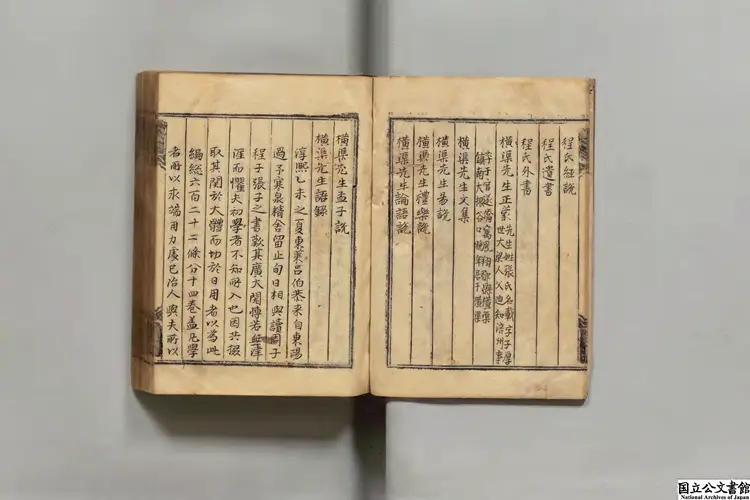 程氏經說
程氏遺書
程氏外書
橫渠先生正蒙先生姓張氏名載字子厚
世大梁人父迪知涪州事
卒于官
橫渠先生文集
橫渠先生易說
橫渠先生禮樂說
橫渠先生論語說
橫渠先生孟子說
橫渠先生語錄
淳熙乙未之夏東萊呂伯恭來自東陽
過予寒泉精舍留止旬日相與讀周子
程子張子之書歎其廣大閎博若無津
涯而懼夫初學者不知所入也因共掇
取其關於大體而切於日用者以爲此
編総六百二十二條分十四卷盖凡學
者所以求端用力處已治人與夫所以
国立公文書館
National Archives of Japan